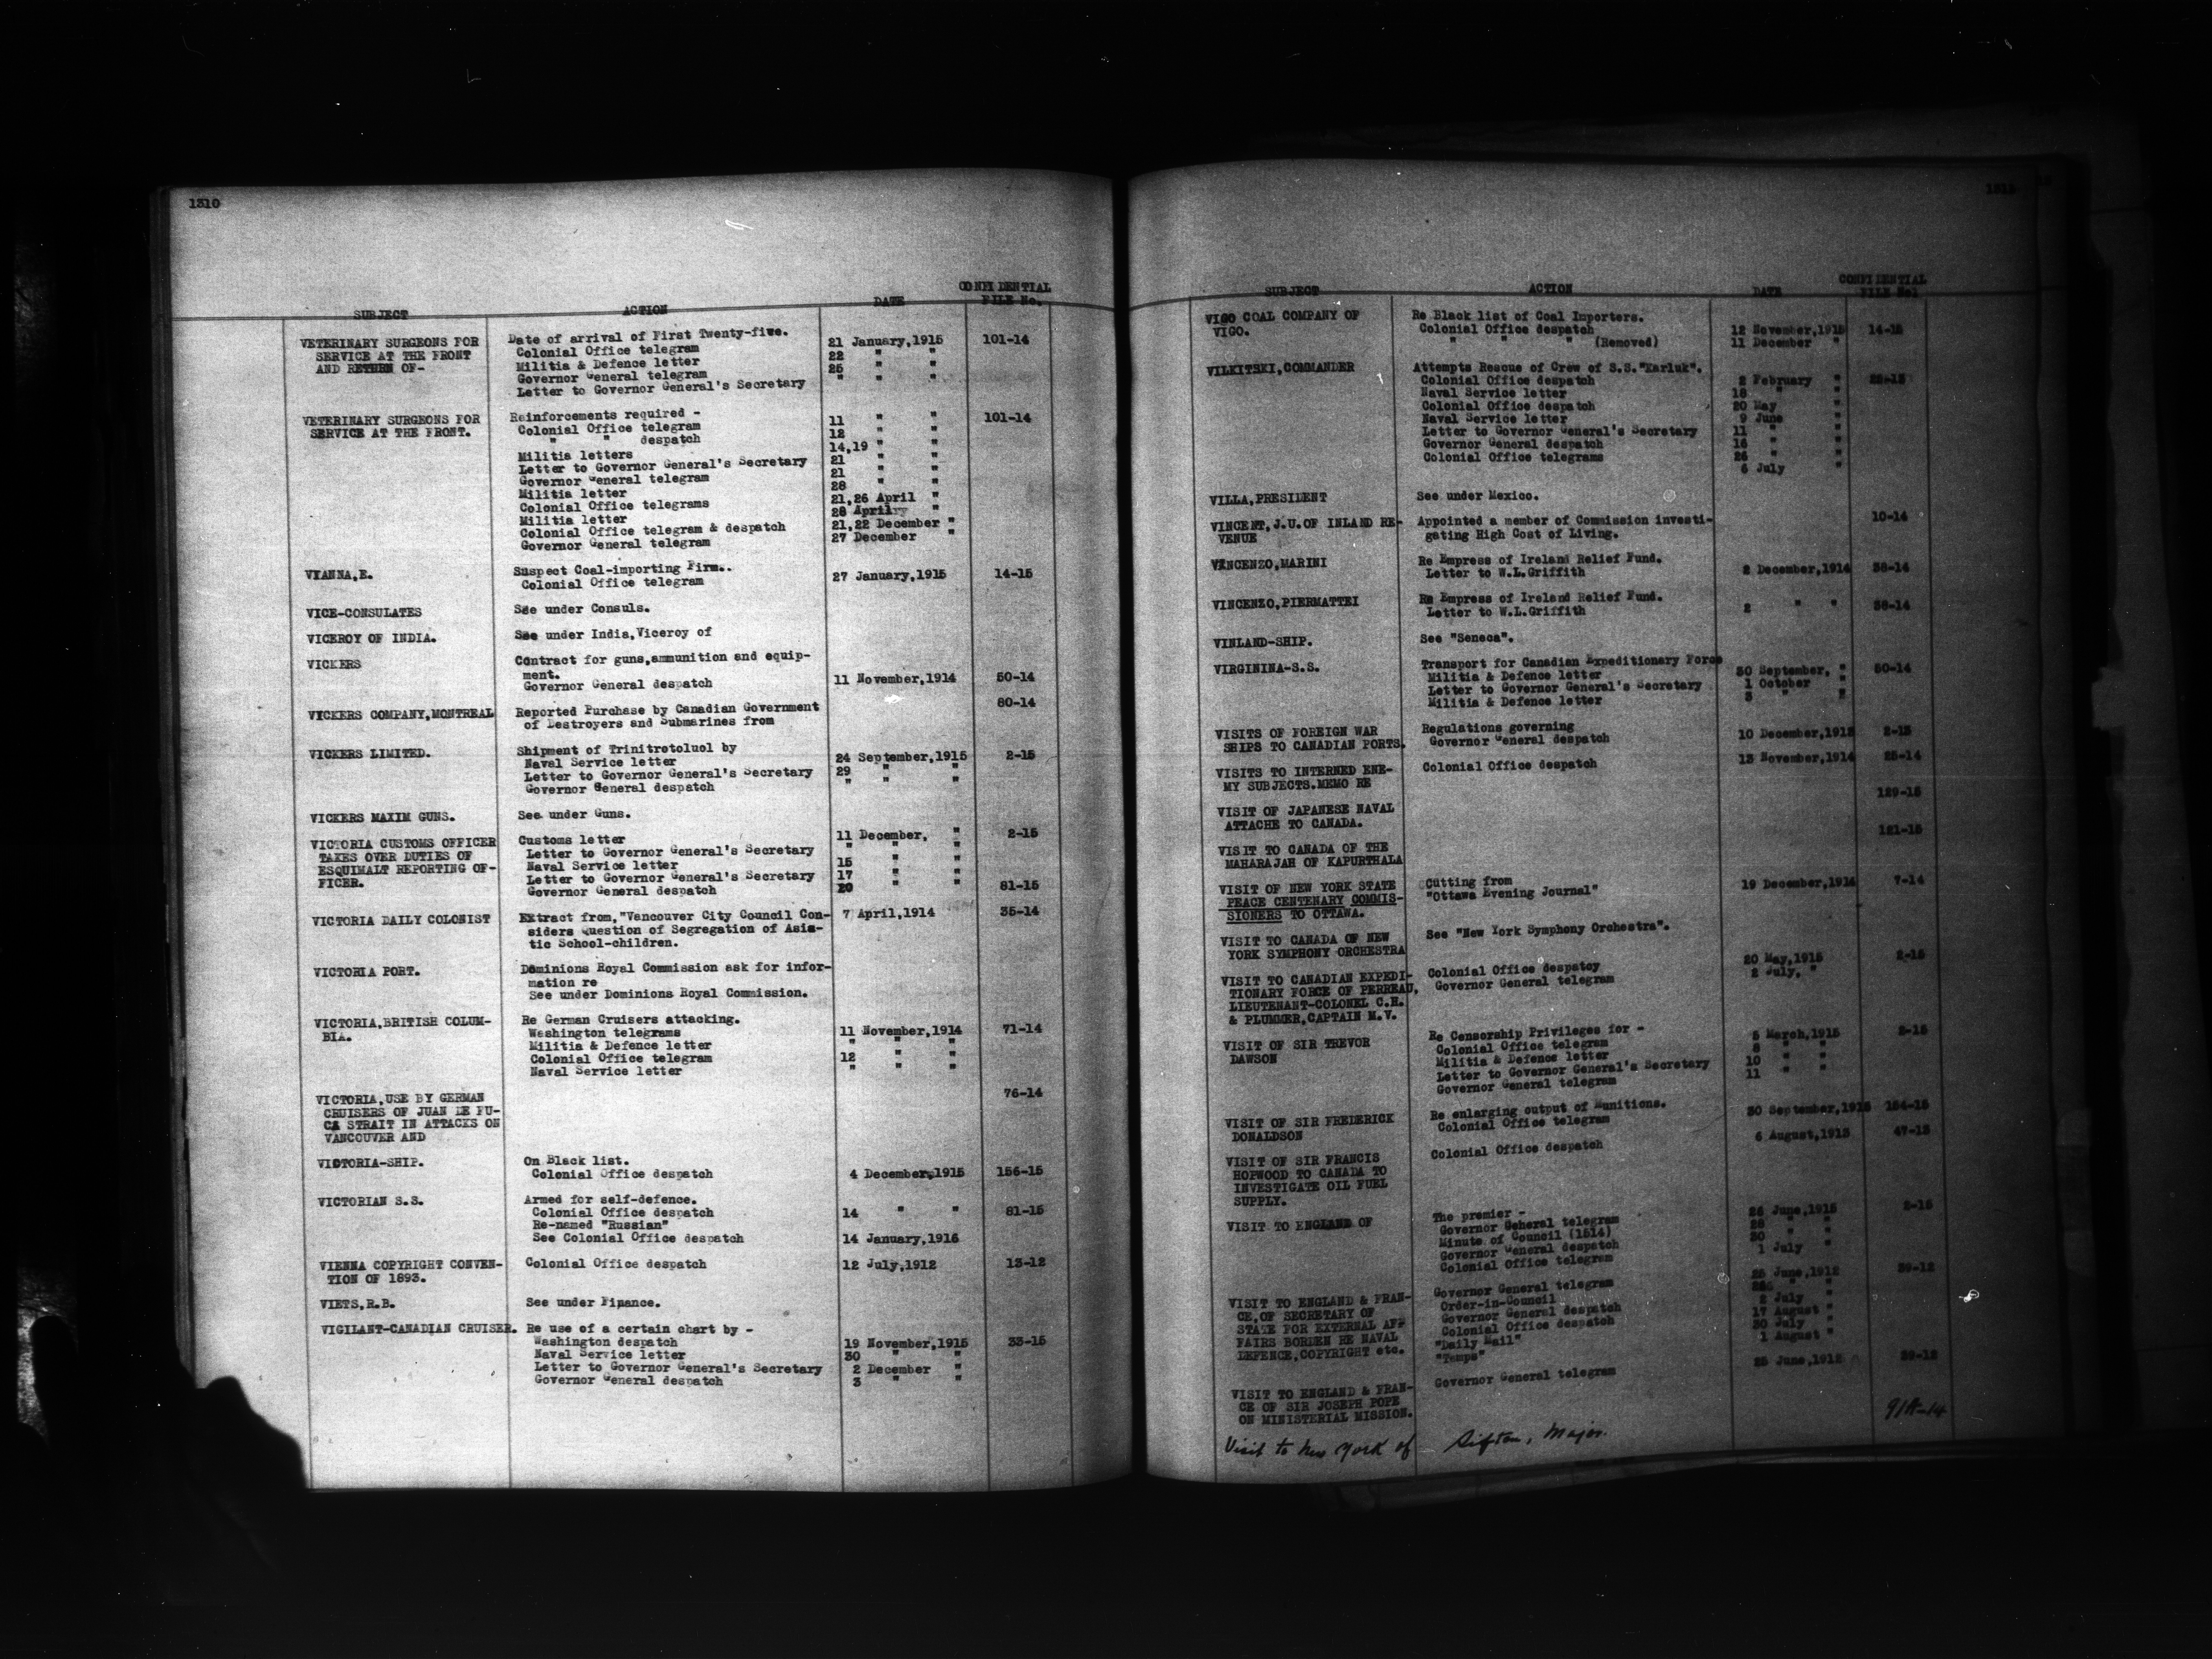 1310
SUBJECT ACTION DATE CONFIDENTIAL FILE No.
VETERINARY SURGEONS FOR SERVICE AT THE FRONT AND RETURN OF-
Date of arrival of First Twenty-five.
Colonial Office telegram 21 January,1915 101-14
Militia & Defence letter 22 " "
Governor General telegram 25 " "
Letter to Governor General's Secretary " " "
VETERINARY SURGEONS FOR SERVICE AT THE FRONT.
Reinforcements required - 101-14
Colonial Office telegram 11 " "
" " despatch 12 " "
Militia letters 14,19 " "
Letter to Governor General's Secretary 21 " "
Governor General telegram 21 " "
Militia letter 28 " "
Colonial Office telegrams 21,26 April "
Militia letter 28 April "
Colonial Office telegram & despatch 21,22 December "
Governor General telegram 27 December "
VIANNA,E. Suspect Coal-importing Firm..
Colonial Office telegram 27 January,1915 14-15
VICE-CONSULATES See under Consuls.
VICEROY OF INDIA. See under India,Viceroy of
VICKERS Contract for guns,ammunition and equip-
ment.
Governor General despatch 11 November,1914 50-14
VICKERS COMPANY,MONTREAL Reported Purchase by Canadian Government 80-14
of Destroyers and Submarines from
VICKERS LIMITED. Shipment of Trinitrotoluol by
Naval Service letter 24 September,1915 2-15
Letter to Governor General's Secretary 29 " "
Governor General despatch " " "
VICKERS MAXIM GUNS. See under Guns.
VICTORIA CUSTOMS OFFICER TAKES OVER DUTIES OF ESQUIMALT REPORTING OF-
FICER.
Customs letter 11 December, " 2-15
Letter to Governor General's Secretary " " "
Naval Service letter 15 " "
Letter to Governor General's Secretary 17 " "
Governor General despatch 20 " " 81-15
VICTORIA DAILY COLONIST Extract from,"Vancouver City Council Con- 7 April,1914 35-14
siders Question of Segregation of Asia-
tic School-children.
VICTORIA PORT. Dominions Royal Commission ask for infor-
mation re
See under Dominions Royal Commission.
VICTORIA,BRITISH COLUM-
BIA.
Re German Cruisers attacking.
Washington telegrams 11 November,1914 71-14
Militia & Defence letter " " "
Colonial Office telegram 12 " "
Naval Service letter " " "
VICTORIA,USE BY GERMAN 76-14
CRUISERS OF JUAN DE FU-
CA STRAIT IN ATTACKS ON
VANCOUVER AND
VICTORIA-SHIP. On Black list.
Colonial Office despatch 4 December,1915 156-15
VICTORIAN S.S. Armed for self-defence.
Colonial Office despatch 14 " " 81-15
Re-named "Russian"
See Colonial Office despatch 14 January,1916
VIENNA COPYRIGHT CONVEN- Colonial Office despatch 12 July,1912 13-12
TION OF 1893.
VIETS,R.B. See under Finance.
VIGILANT-CANADIAN CRUISER. Re use of a certain chart by -
Washington despatch 19 November,1915 33-15
Naval Service letter 30 " "
Letter to Governor General's Secretary 2 December "
Governor General despatch 3 " "
SUBJECT ACTION DATE CONFIDENTIAL FILE No.
VIGO COAL COMPANY OF VIGO.
Re Black list of Coal Importers.
Colonial Office despatch 12 November,1915 14-15
" " " (Removed) 11 December "
VILKITSKI,COMMANDER Attempts Rescue of Crew of S.S."Karluk".
Colonial Office despatch 2 February "
Naval Service letter 18 " "
Colonial Office despatch 20 May "
Naval Service letter 9 June "
Letter to Governor General's Secretary 11 " "
Governor General despatch 16 " "
Colonial Office telegrams 26 " "
6 July "
VILLA,PRESIDENT See under Mexico.
VINCENT,J.U.OF INLAND RE- Appointed a member of Commission investi- 10-14
VENUE gating High Cost of Living.
VINCENZO,MARINI Re Empress of Ireland Relief Fund.
Letter to W.L.Griffith 2 December,1914 38-14
VINCENZO,PIERMATTEI Re Empress of Ireland Relief Fund.
Letter to W.L.Griffith 2 " " 38-14
VINLAND-SHIP. See "Seneca".
VIRGININA-S.S. Transport for Canadian Expeditionary Force
Militia & Defence letter 30 September, " 50-14
Letter to Governor General's Secretary 1 October "
Militia & Defence letter 3 " "
VISITS OF FOREIGN WAR SHIPS TO CANADIAN PORTS.
Regulations governing
Governor General despatch 10 December,1915 2-15
VISITS TO INTERNED ENE- Colonial Office despatch 13 November,1914 25-14
MY SUBJECTS.MEMO RE
VISIT OF JAPANESE NAVAL 129-15
ATTACHE TO CANADA.
VISIT TO CANADA OF THE 121-15
MAHARAJAH OF KAPURTHALA
VISIT OF NEW YORK STATE PEACE CENTENARY COMMIS-
SIONERS TO OTTAWA.
Cutting from
"Ottawa Evening Journal" 19 December,1914 7-14
VISIT TO CANADA OF NEW YORK SYMPHONY ORCHESTRA
See "New York Symphony Orchestra".
VISIT TO CANADIAN EXPEDI-
TIONARY FORCE OF PERREAU,
LIEUTENANT-COLONEL C.H.
& PLUMMER,CAPTAIN M.V.
Colonial Office despatcy 20 May,1915 2-15
Governor General telegram 2 July, "
VISIT OF SIR TREVOR DAWSON
Re Censorship Privileges for -
Colonial Office telegram 5 March,1915 2-15
Militia & Defence letter 8 " "
Letter to Governor General's Secretary 10 " "
Governor General telegram 11 " "
VISIT OF SIR FREDERICK DONALDSON
Re enlarging output of Munitions.
Colonial Office telegram 30 September,1915 154-15
VISIT OF SIR FRANCIS HOPWOOD TO CANADA TO INVESTIGATE OIL FUEL SUPPLY.
Colonial Office despatch 6 August,1913 47-13
VISIT TO ENGLAND OF The premier -
Governor General telegram 26 June,1915 2-15
Minute of Council (1514) 28 " "
Governor General despatch 30 " "
Colonial Office telegram 1 July "
VISIT TO ENGLAND & FRAN-
CE,OF SECRETARY OF
STATE FOR EXTERNAL AFF
FAIRS BORDEN RE NAVAL
DEFENCE,COPYRIGHT etc.
Governor General telegram 25 June,1912 39-12
Order-in-Council " "
Governor General despatch 2 July "
Colonial Office despatch 17 August "
"Daily Mail" 30 July "
"Temps" 1 August "
VISIT TO ENGLAND & FRAN-
CE OF SIR JOSEPH POPE
ON MINISTERIAL MISSION.
Governor General telegram 25 June,1912 39-12
Visit to New York of Sifton, Major.